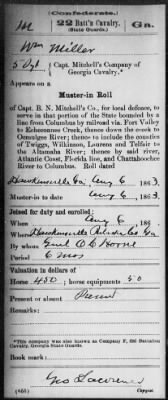 (Confederate.)
M 22 Batt's Cavalry. Ga.
(State Guards.)
Wm Miller
Capt. Mitchell's Company of
Georgia Cavalry.*
Appears on a
Muster-in Roll
of Capt. B. N. Mitchell's Co., for local defence, to
serve in that portion of the State bounded by a
line from Columbus by railroad via. Fort Valley
to Echeconnee Creek, thence down the creek to
Ocmulgee River; thence to include the counties
of Twiggs, Wilkinson, Laurens and Telfair to
the Altamaha River; thence by said river,
Atlantic Coast, Florida line, and Chattahoochee
River to Columbus. Roll dated
Hawkinsville Ga Aug 6 1863
Muster-in to date Aug 6, 1863
Joined for duty and enrolled:
When Aug 6
Where Hawkinsville Pulaski Co Ga
By whom
Period 6 mos
Valuation in dollars of
Horse 450; horse equipments 50
Present or absent Present
Remarks:
*This company was also known as Company F, 22d Battalion
Cavalry, Georgia State Guards.
Book mark:
Geo Lawrence
Copyist.